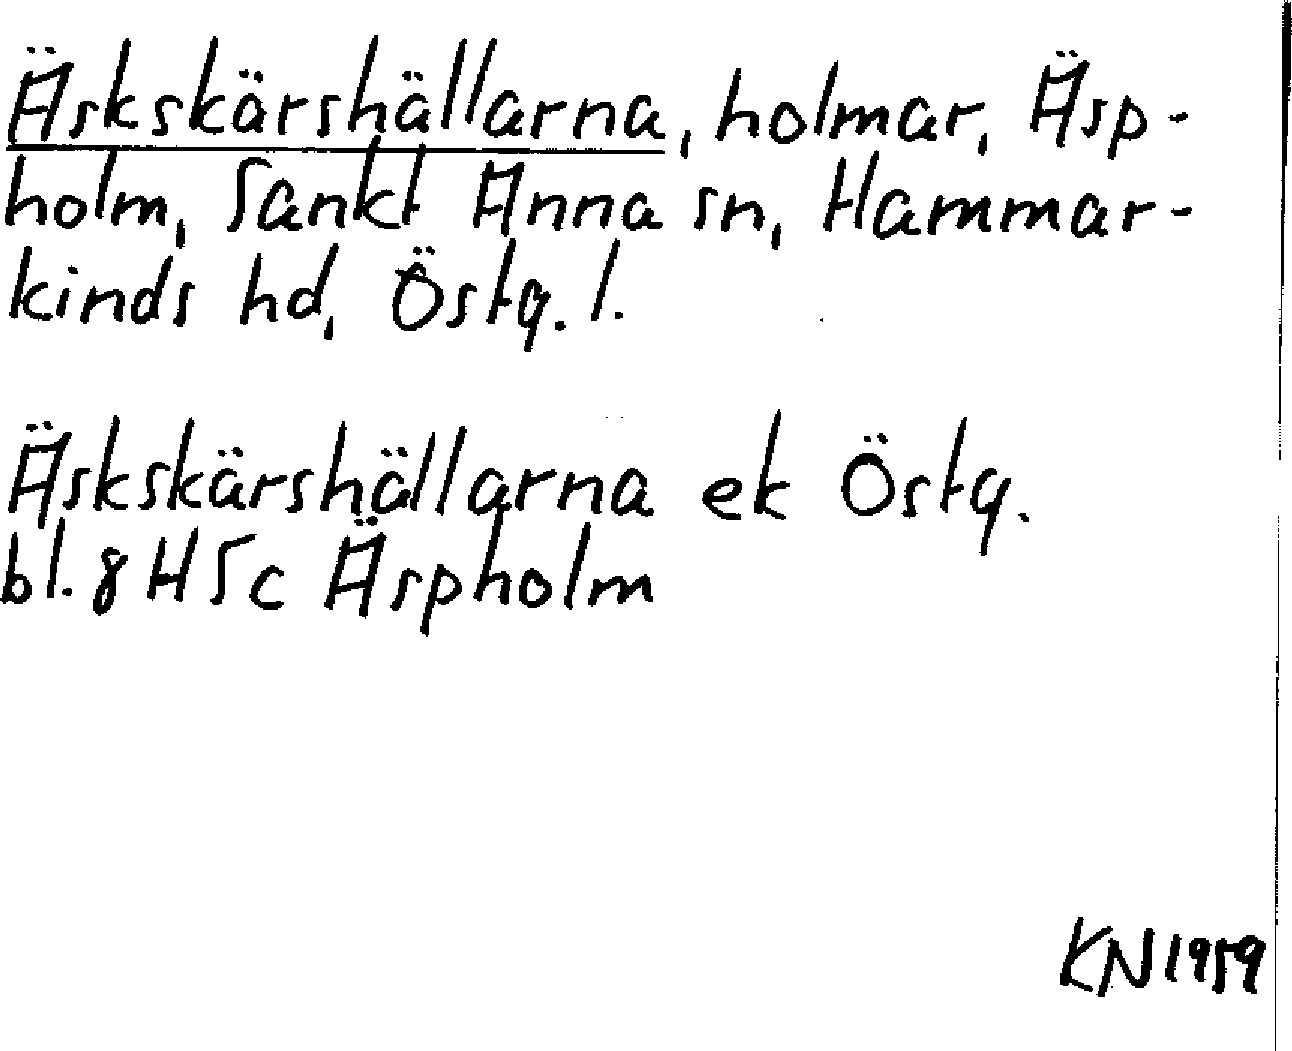 Äskskärshällarna, holmar, Äsp-
holm, Sankt Anna sn, Hammar-
kinds hd, Östg. l.
Äskskärshällarna ek Östg.
bl. 8 H Sc Äspholm
KN 1959